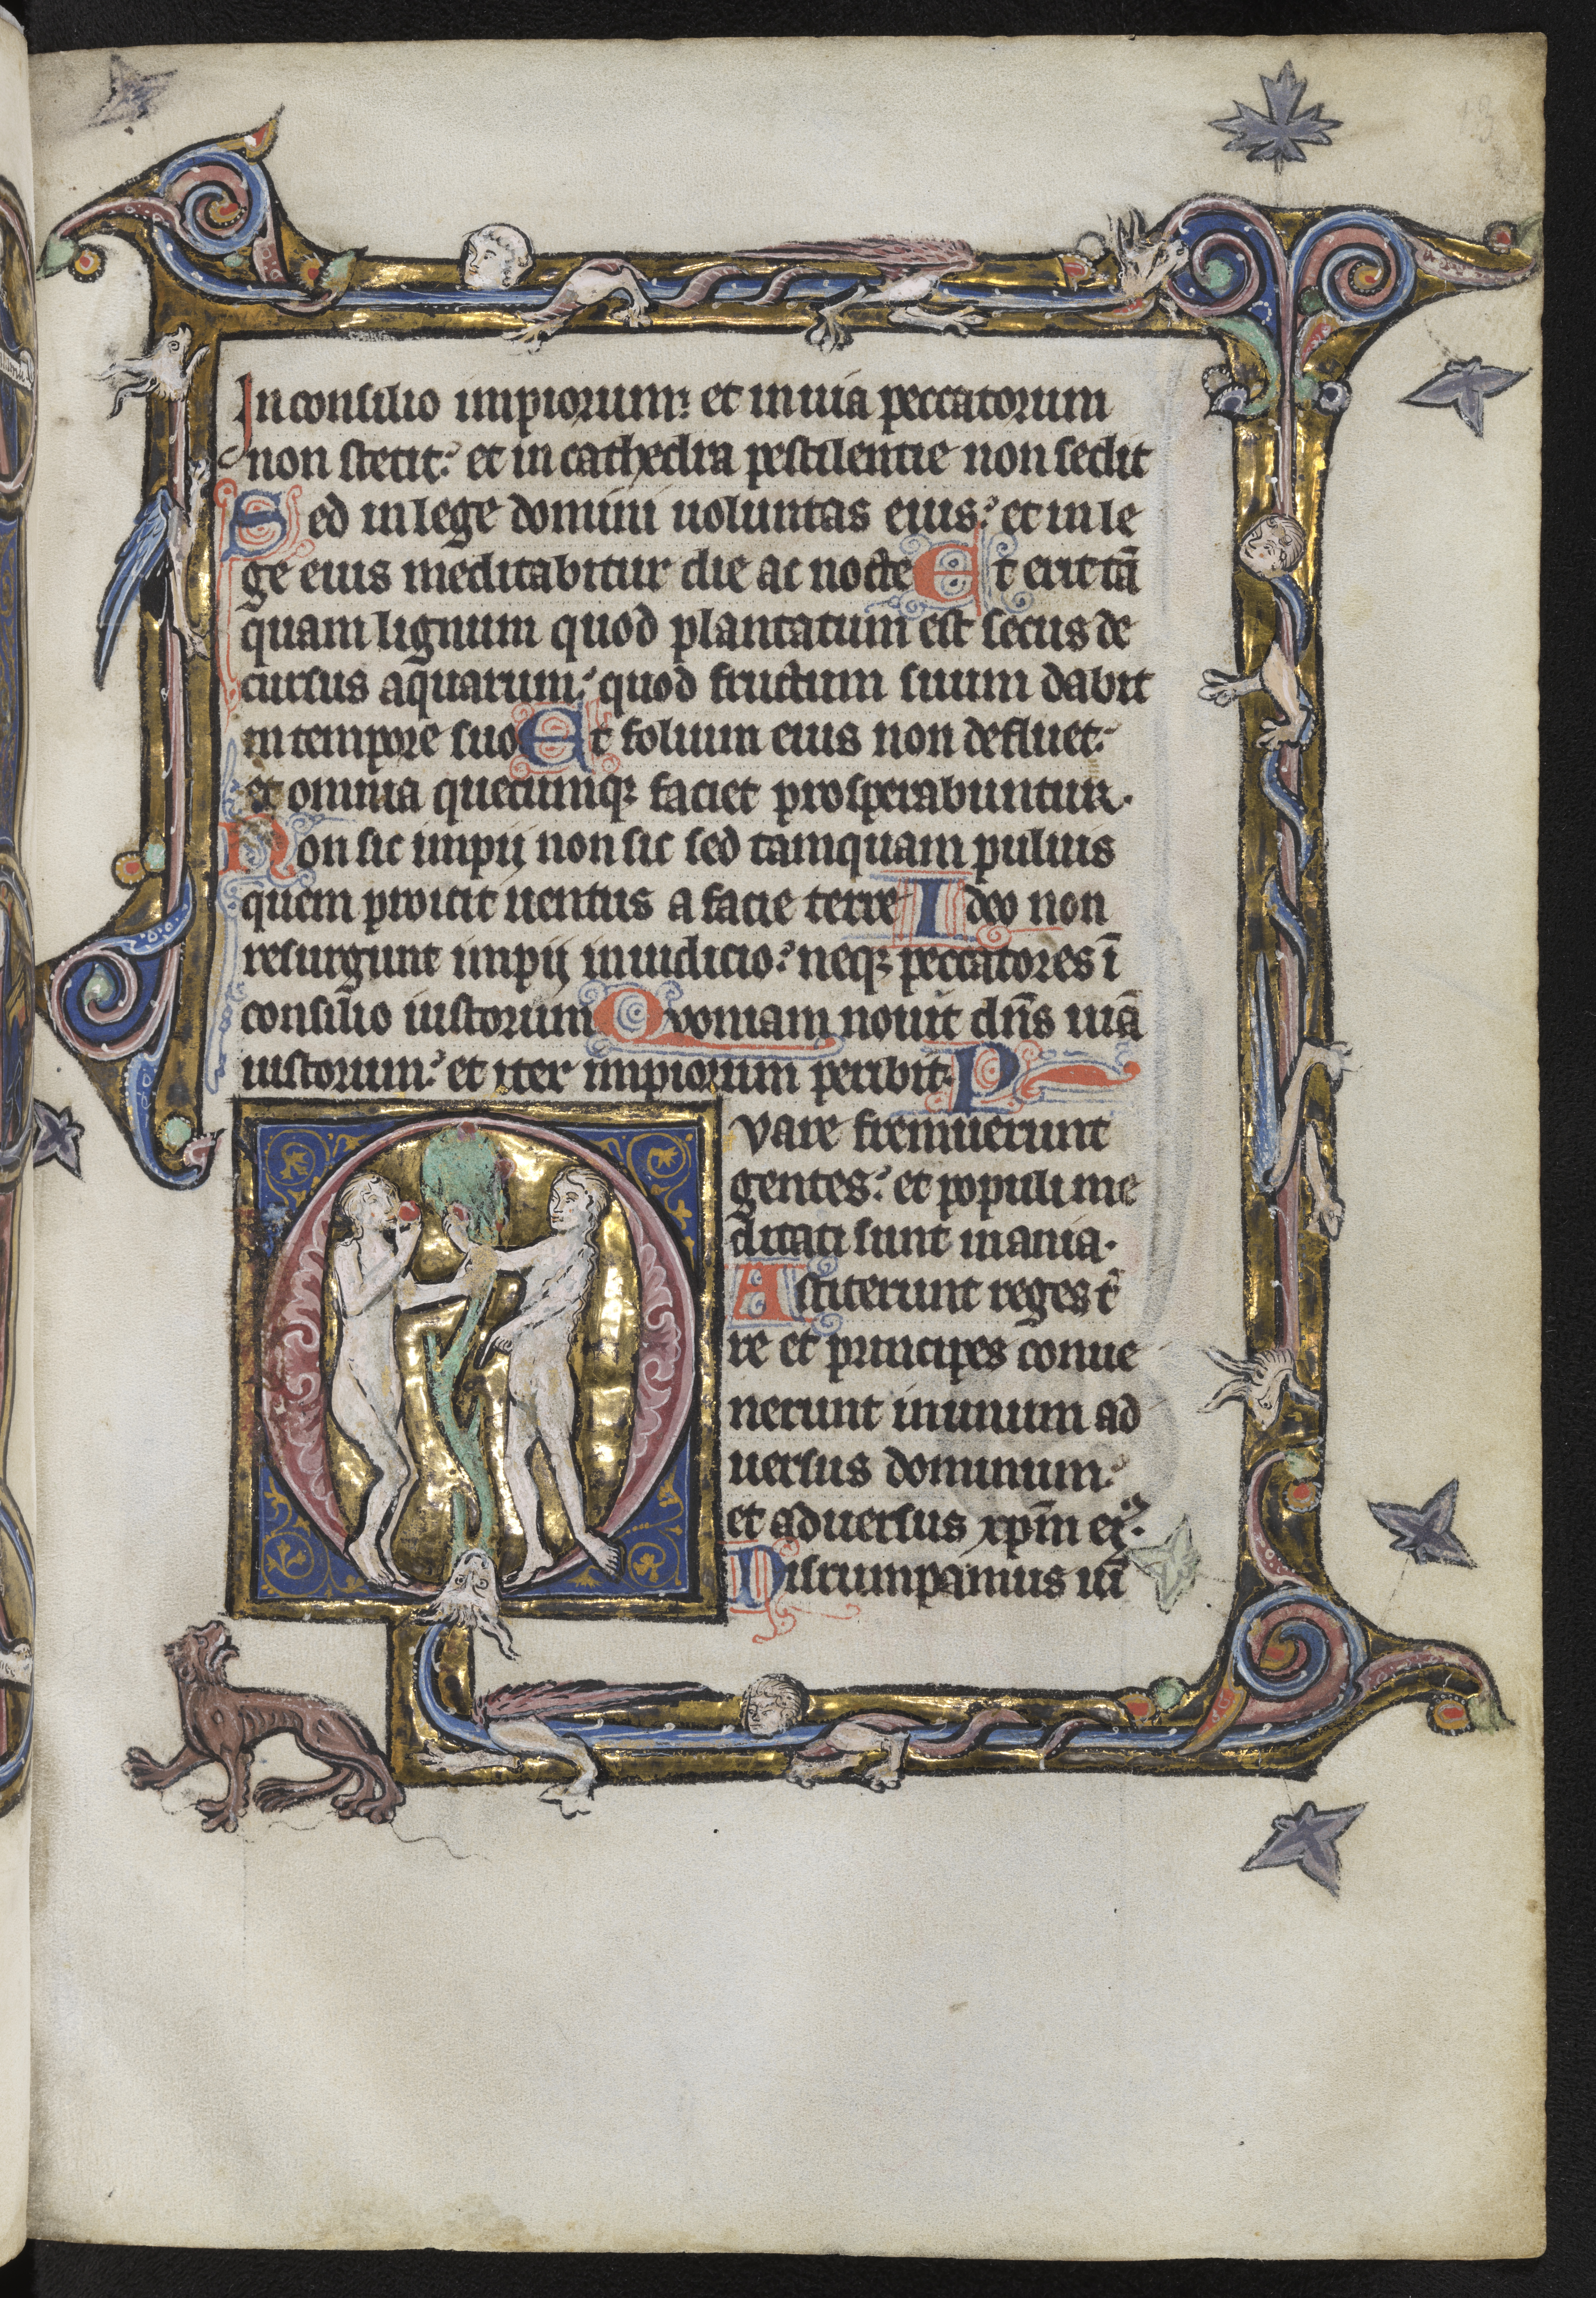 In consilio impiorum: et in uia peccatorum
non stetit: et in cathedra pestilentie non sedit
Sed in lege domini uoluntas eius: et in le
ge eius meditabitur die ac nocte Et erit tā
quam lignum quod plantatum est secus de
cursus aquarum: quod fructum suum dabit
in tempore suo Et folium eius non defluet:
et omnia quecumqꝫ faciet prosperabuntur.
Non sic impij non sic sed tamquam puluis
quem proicit uentus a facie terre Ideo non
resurgunt impij in iudicio: neqꝫ peccatores ī
consilio iustorum Quoniam nouit dn̄s uiā
iustorum: et iter impiorum peribit. P
Q
vare fremuerunt
gentes: et populi me
ditati sunt inania.
Astiterunt reges t̾
re et principes conue
nerunt in unum ad
uersus dominum:
et aduersus xp̄m ei.
Disrumpamus uī
13